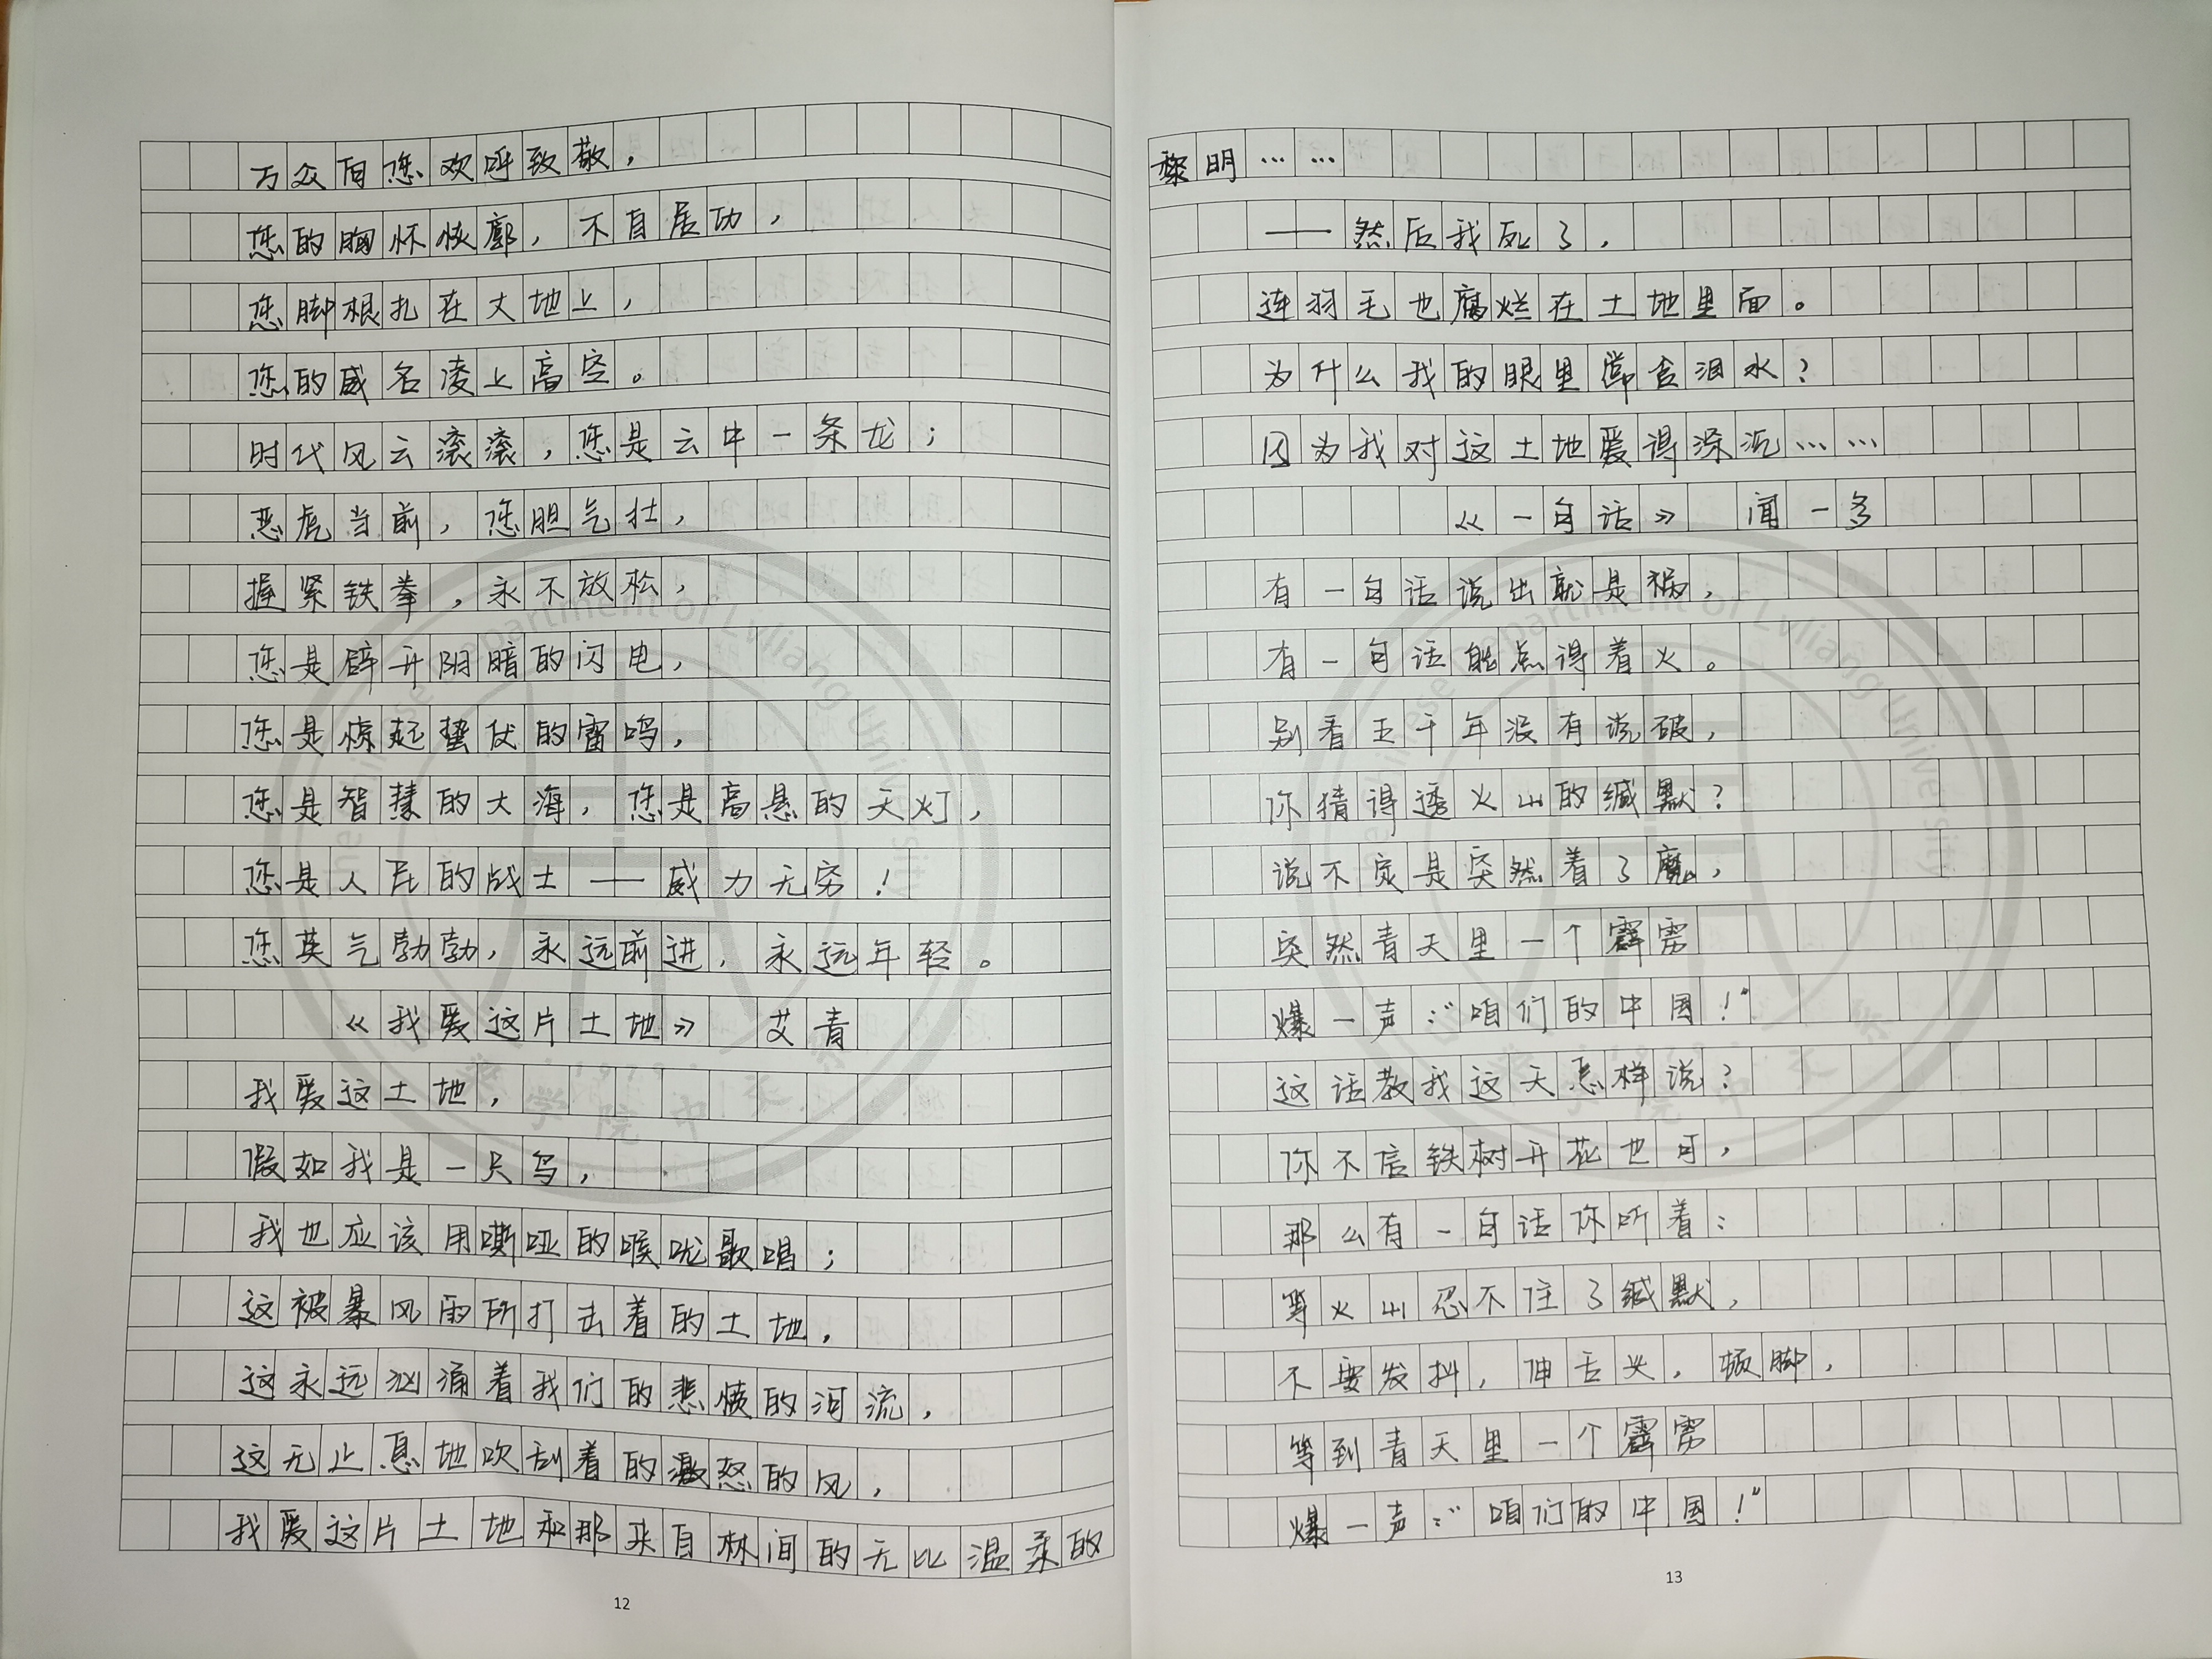 万众向您欢呼致敬，
您的胸怀恢廓，不自居功，
您脚根扎在大地上，
您的威名凌上高空。
时代风云滚滚，您是云中一条龙；
恶虎当前，您胆气壮，
握紧铁拳，永不放松，
您是辟开阴暗的闪电，
您是惊起蛰伏的雷鸣，
您是智慧的大海，您是高悬的天灯，
您是人民的战士——威力无穷！
您英气勃勃，永远前进，永远年轻。
《我爱这片土地》 艾青
我爱这土地，
假如我是一只鸟，
我也应该用嘶哑的喉咙歌唱；
这被暴风雨所打击着的土地，
这永远汹涌着我们的悲愤的河流，
这无止息地吹刮着的激怒的风，
我爱这片土地和那来自林间的无比温柔的
12
黎明……
——然后我死了，
连羽毛也腐烂在土地里面。
为什么我的眼里常含泪水？
因为我对这土地爱得深沉……
《一句话》 闻一多
有一句话说出就是祸，
有一句话能点得着火。
别看五千年没有说破，
你猜得透火山的缄默？
说不定是突然着了魔，
突然青天里一个霹雳
爆一声：“咱们的中国！”
这话教我这天怎样说？
你不信铁树开花也可，
那么有一句话你听着：
等火山忍不住了缄默，
不要发抖，伸舌头，顿脚，
等到青天里一个霹雳
爆一声：“咱们的中国！”
13
The Chinese Department of Lvliang University
1978